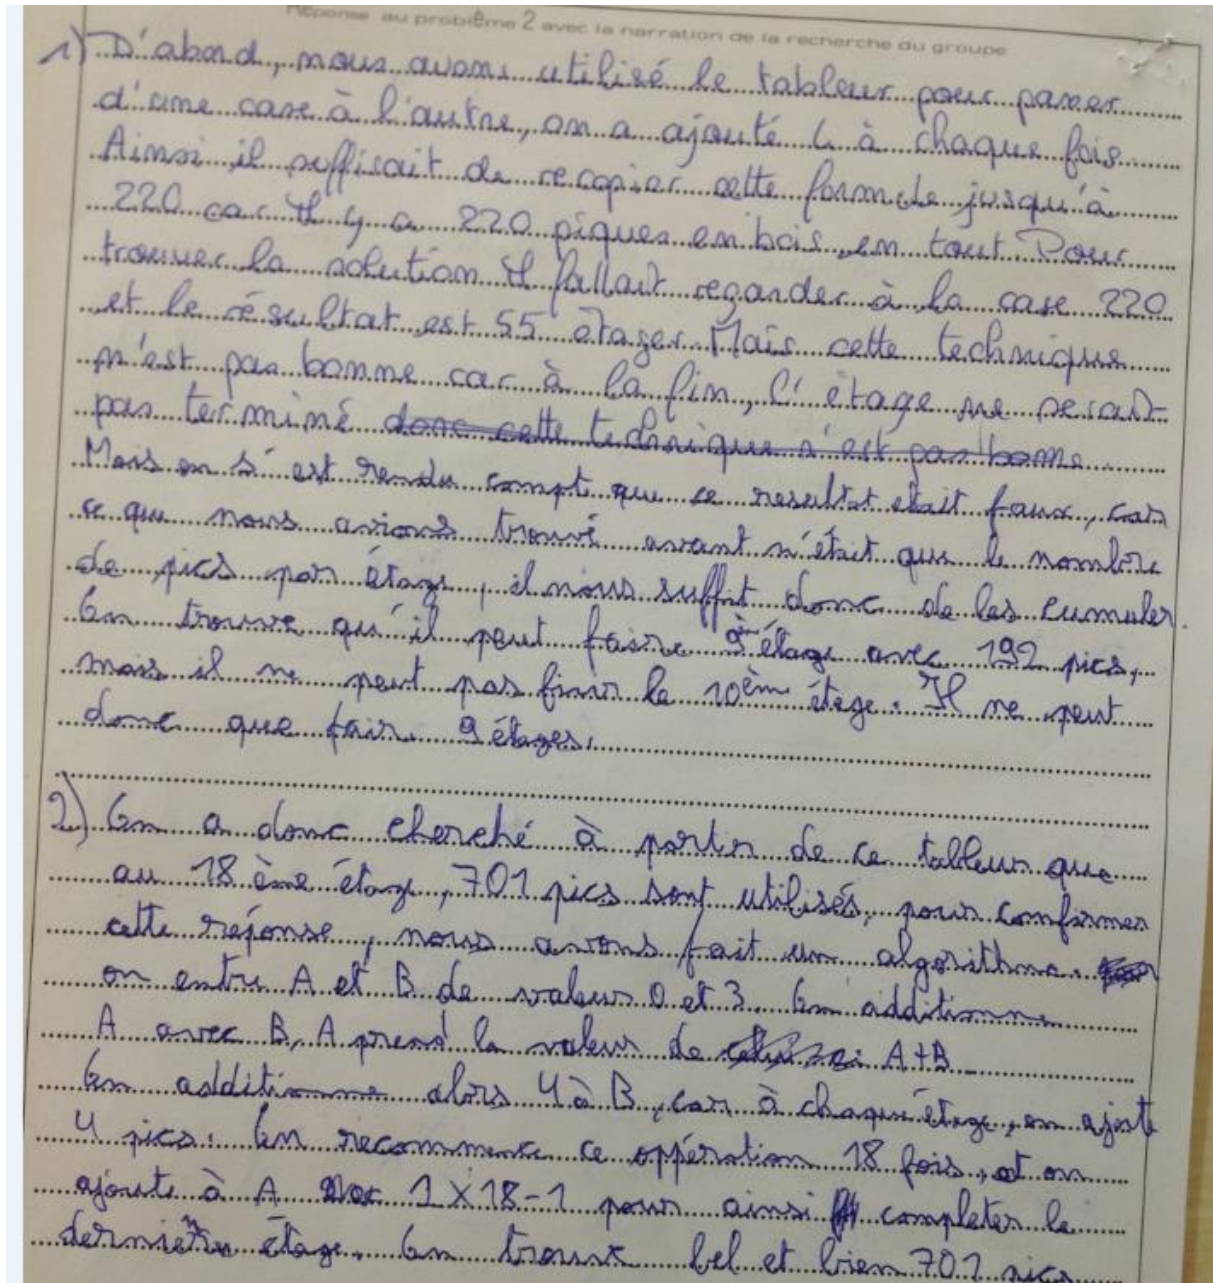 Réponse au problème 2 avec la narration de la recherche du groupe
1) D'abord, nous avons utilisé le tableur pour passer
d'une case à l'autre, on a ajouté 4 à chaque fois
Ainsi il suffisait de recopier cette formule jusqu'à
220 car il y a 220 piques en bois en tout. Pour
trouver la solution il fallait regarder à la case 220
et le résultat est 55 étages. Mais cette technique
n'est pas bonne car à la fin, l'étage ne serait
pas terminé donc cette technique n'est pas bonne
Mais on s'est rendu compt que ce resultat etait faux, car
ce que nous avions trouvé avant n'était que le nombre
de pics par étage, il nous suffit donc de les cumuler.
On trouve qu'il peut faire 9ème étage avec 192 pics,
mais il ne peut pas finir le 10èm étage. Il ne peut
donc que fair 9 étages.
2) On a donc cherché à partir de ce tableur que
au 18 ème étage, 701 pics sont utilisés, pour confirmer
cette réponse, nous avons fait un algorithme.
on entre A et B de valeurs 0 et 3. On additionne
A avec B, A prend la valeur de A+B
On additionne alors 4 à B, car à chaque étage, on ajoute
4 pics. On recommence ce oppération 18 fois, et on
ajoute à A 1×18-1 pour ainsi completer le
dernière étage. On trouve bel et bien 701 pics